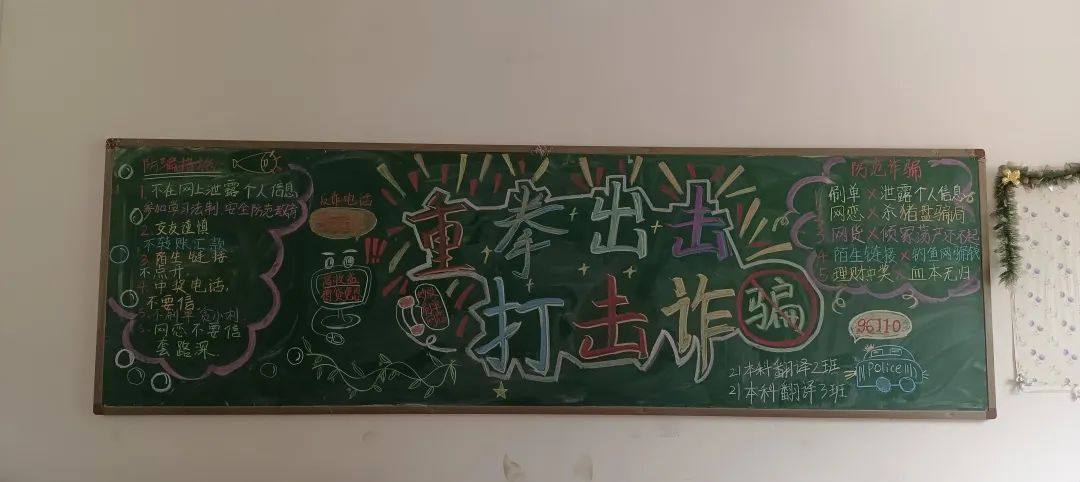 防骗措施
1.不在网上泄露个人信息
参加学习法制 安全防范教育
2.交友谨慎
不转账汇款
3.陌生链接
不点开,
4.中奖电话,
不要信
5.不刷单贪小利
网恋不要信
套路深.
反诈电话
重拳出击
打击诈骗
防范诈骗
刷单×泄露个人信息
网恋×杀猪盘骗局
3.网贷×倾家荡产
4.陌生链接×钓鱼网骗钱
5.理财中奖×血本无归
96110
Police
21本科翻译2班
21本科翻译3班